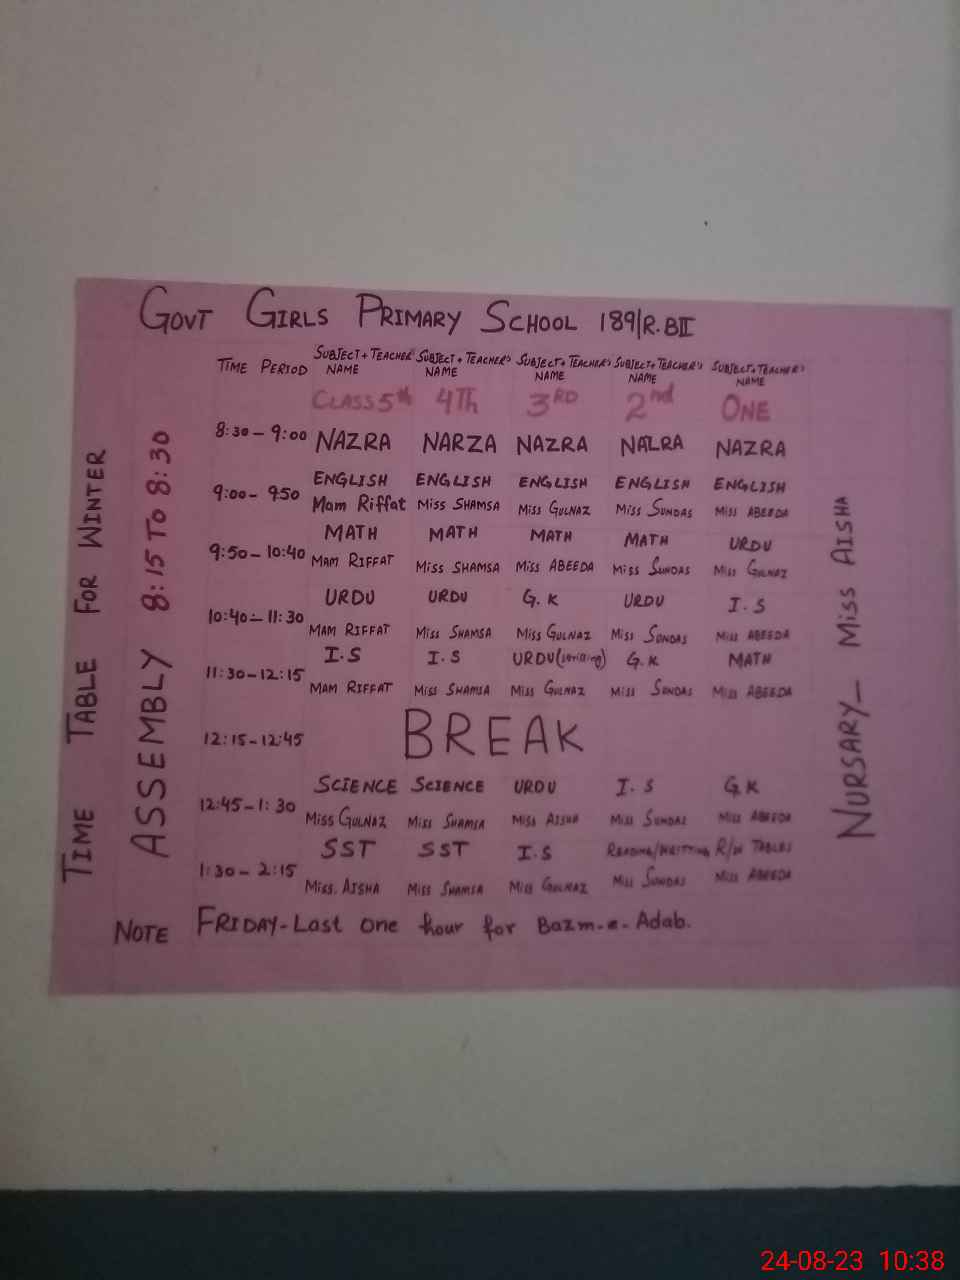 GOVT GIRLS PRIMARY SCHOOL 189/R.BII
TIME TABLE FOR WINTER
ASSEMBLY 8:15 TO 8:30
TIME PERIOD SUBJECT+TEACHER NAME SUBJECT+TEACHER'S NAME SUBJECT+TEACHER'S NAME SUBJECT+TEACHER'S NAME SUBJECT+TEACHER'S NAME
CLASS 5th 4Th 3RD 2nd ONE
8:30-9:00 NAZRA NARZA NAZRA NALRA NAZRA
ENGLISH ENGLISH ENGLISH ENGLISH ENGLISH
9:00-950 Mam Riffat Miss SHAMSA Miss GULNAZ Miss SUNDAS Miss ABEEDA
MATH MATH MATH MATH URDU
9:50-10:40 MAM RIFFAT Miss SHAMSA Miss ABEEDA Miss SUNDAS Miss GULNAZ
URDU URDU G.K URDU I.S
10:40-11:30 MAM RIFFAT Miss SHAMSA Miss GULNAZ Miss SUNDAS Miss ABEEDA
I.S I.S URDU G.K MATH
11:30-12:15 MAM RIFFAT Miss SHAMSA Miss GULNAZ Miss SUNDAS Miss ABEEDA
12:15-12:45 BREAK
SCIENCE SCIENCE URDU I.S G.K
12:45-1:30 Miss GULNAZ Miss SHAMSA Miss AISHA Miss SUNDAS Miss ABEEDA
SST SST I.S READING/WRITTING R/W TABLES
1:30-2:15 Miss. AISHA Miss SHAMSA Miss GULNAZ Miss SUNDAS Miss ABEEDA
NURSARY- Miss AISHA
NOTE FRIDAY-Last one hour for Bazm-e-Adab.
24-08-23 10:38